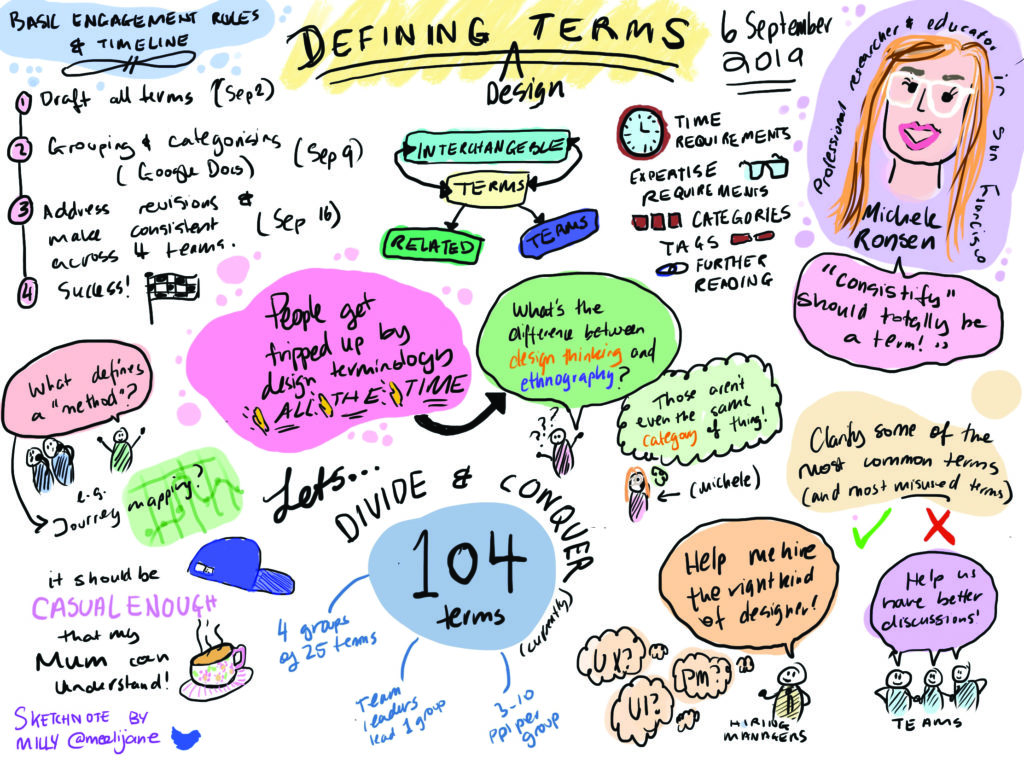 BASIC ENGAGEMENT RULES
& TIMELINE
1 Draft all terms (Sep 2)
2 Grouping & categorising
(Google Docs)
(Sep 9)
3 Address revisions &
make consistent
across 4 terms.
(Sep 16)
4 Success!
DEFINING TERMS
Design
6 September
2019
INTERCHANGEABLE
TERMS
RELATED
TERMS
TIME
REQUIREMENTS
EXPERTISE
REQUIREMENTS
CATEGORIES
TAGS
FURTHER
READING
Professional researcher & educator
in San Francisco
Michele
Ronsen
"Consistify"
should totally be
a term!"
People get
tripped up by
design terminology
ALL THE TIME
What's the
difference between
design thinking and
ethnography?
? ? ? ?
Those aren't
even the same
category of thing!
(michele)
What defines
a "method"?
e.g.
Journey mapping?
Clarify some of the
most common terms
(and most misused terms)
Lets...
DIVIDE & CONQUER
104
terms
(currently)
4 groups
of 25 terms
Team
leaders
lead 1 group
3-10
ppl per
group
it should be
CASUAL ENOUGH
that my
Mum can
understand!
Help me hire
the right kind
of designer!
UX?
PM?
UI?
HIRING
MANAGERS
Help us
have better
discussions!
TEAMS
SKETCHNOTE BY
MILLY @meelijane